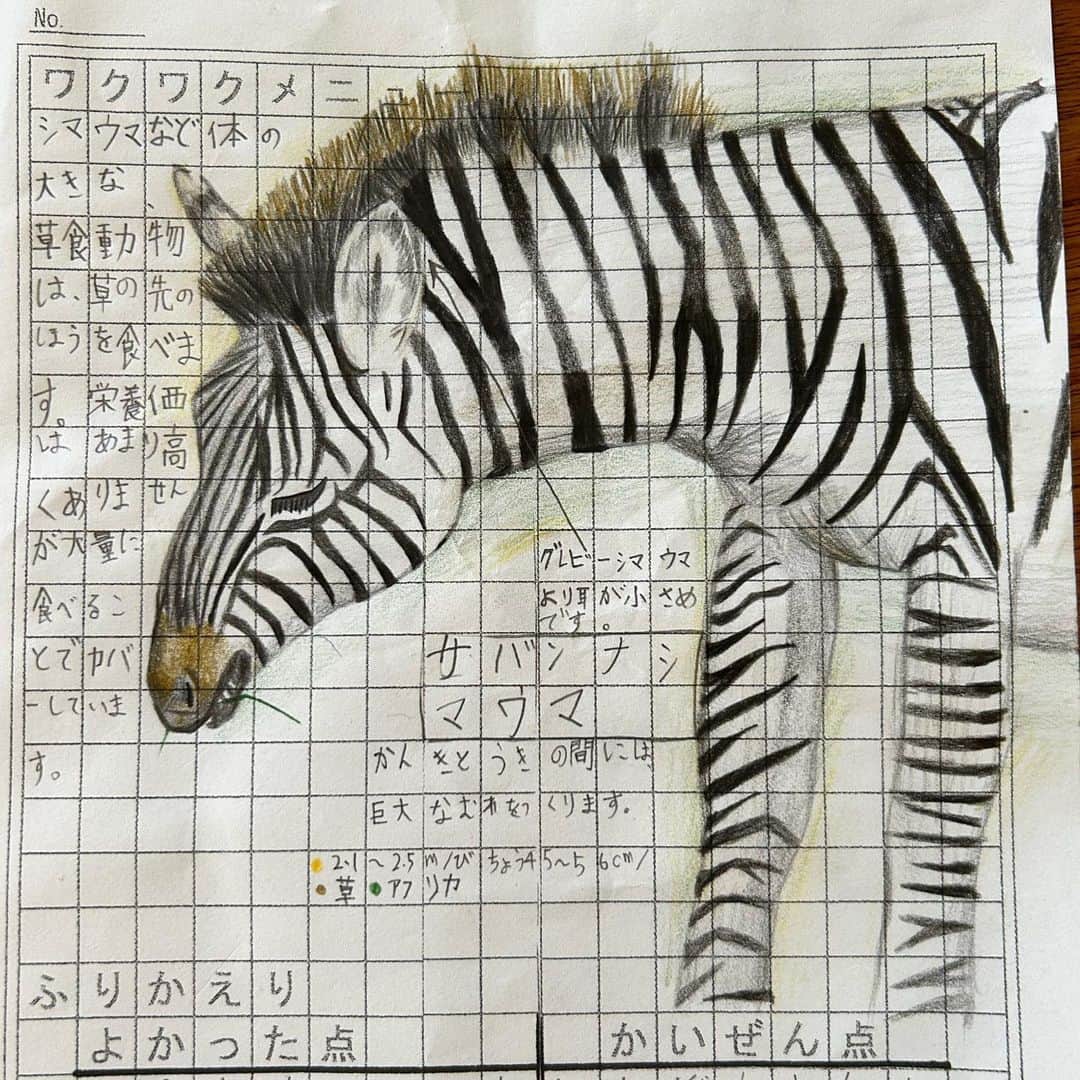 No.
ワクワクメニュー
シマウマなど体の
大きな、
草食動物
は、草の先の
ほうを食べま
す。栄養価
はあまり高
くありません
が大量に
食べるこ
とでカバ
ーしていま
す。
グレビーシマウマ
より耳が小さめ
です。
サバンナシ
マウマ
かんきとうきの間には
巨大なむれをつくります。
2.1〜2.5m/びちょう45〜56cm/
草 アフリカ
ふりかえり
よかった点 かいぜん点